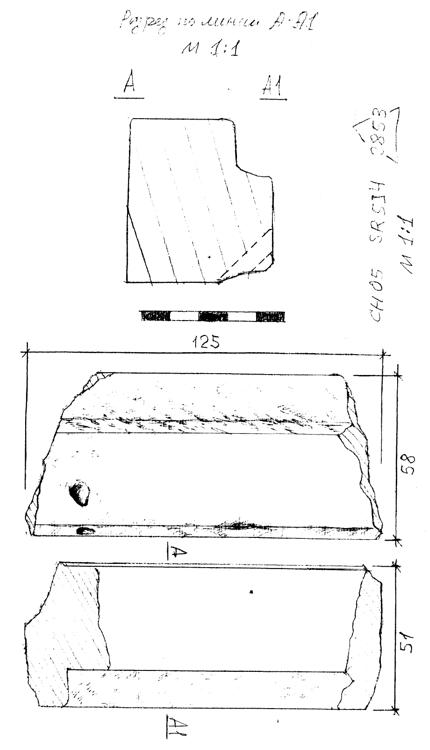 Разрез по линии А-А1
М 1:1
А
А1
CH05 SR514 2853
М 1:1
125
58
А
51
А1